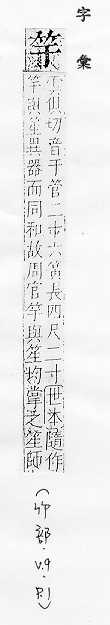 字彙
竽
雲俱切音于管三十六簧長四尺二寸世本隨作
竽與笙異器而同和故周官竽與笙均掌之笙師
(竹部·V.9·P.1)